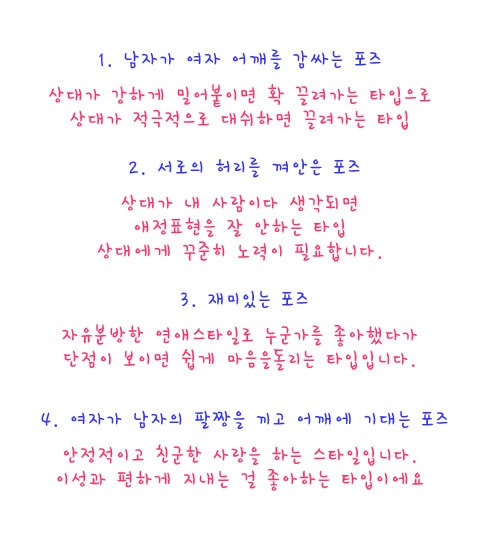 1. 남자가 여자 어깨를 감싸는 포즈
상대가 강하게 밀어붙이면 확 끌려가는 타입으로
상대가 적극적으로 대쉬하면 끌려가는 타입
2. 서로의 허리를 껴안은 포즈
상대가 내 사람이다 생각되면
애정표현을 잘 안하는 타입
상대에게 꾸준히 노력이 필요합니다.
3. 재미있는 포즈
자유분방한 연애스타일로 누군가를 좋아했다가
단점이 보이면 쉽게 마음을돌리는 타입입니다.
4. 여자가 남자의 팔짱을 끼고 어깨에 기대는 포즈
안정적이고 친군한 사랑을 하는 스타일입니다.
이성과 편하게 지내는 걸 좋아하는 타입이에요